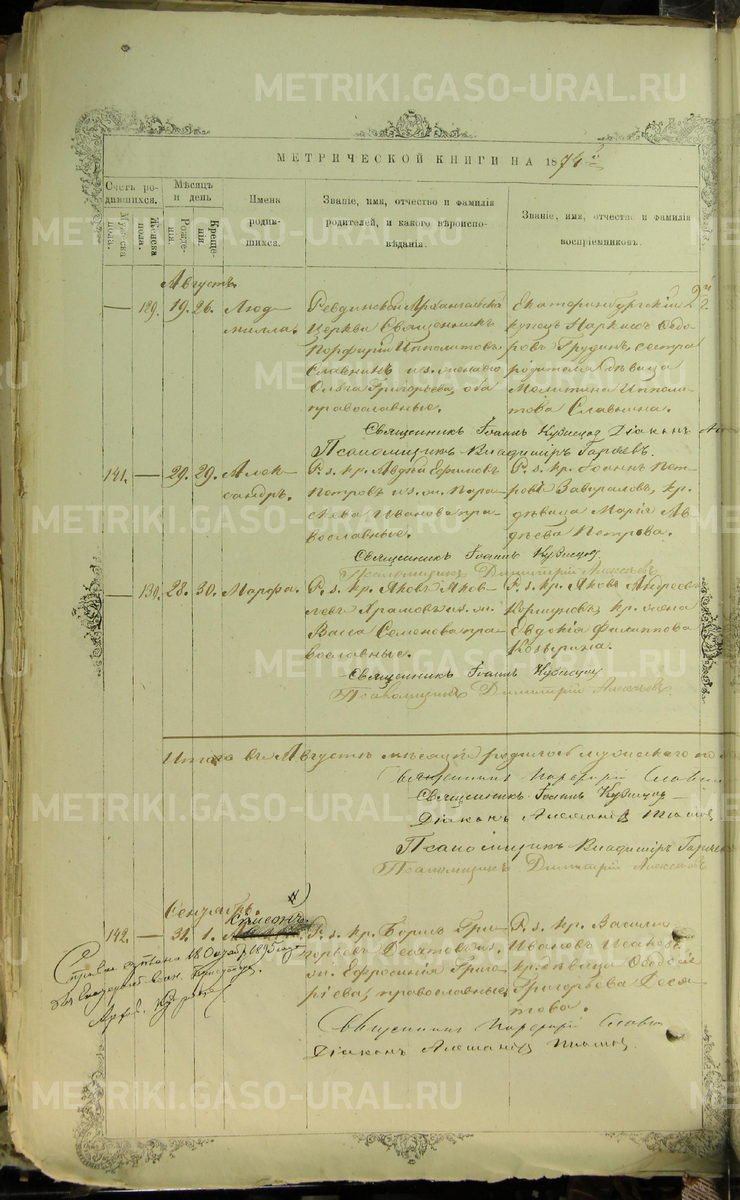 METRIKI.GASO-URAL.RU
МЕТРИЧЕСКОЙ КНИГИ НА 1874й
Счетъ родившихся.
Мужеска пола.
Женска пола.
Мѣсяцъ и день
Рожденія.
Крещенія.
Имена родившихся.
Званіе, имя, отчество и фамилія родителей, и какого вѣроисповѣданія.
Званіе, имя, отчество и фамилія воспріемниковъ.
Августъ
— 129. 19. 26. Людмилла.
Ревдинской Архангельской
церкви Священникъ
Порфирій Ипполитовъ
Славнинъ и з. жена его
Ольга Григорьева, оба
православные.
Екатеринбургскій 2й г.
купецъ Наркисъ Ѳедоровъ
Грудинъ, сестра
родителя дѣвица
Мелитина Ипполитова
Славнина.
Священникъ Іоаннъ Кузнецов Діаконъ
Псаломщикъ Владиміръ Гаряевъ.
141. — 29. 29. Александръ.
Р. з. кр. Авдѣй Ефимовъ
Петровъ и з. ж. Параскева
Иванова православные.
Р. з. кр. Іоаннъ Петровъ
Завираловъ, кр.
дѣвица Марія Авдѣева
Петрова.
Священникъ Іоаннъ Кузнецов
Псаломщикъ Димитрій Алексѣевъ
— 130. 28. 30. Марфа.
Р. з. кр. Яковъ Яковлевъ
Храмовъ и з. ж.
Васса Семенова православные.
Р. з. кр. Яковъ Андреевъ
Коршуновъ, кр. жена
Евдокія Филиппова
Козырина.
Священникъ Іоаннъ Кузнецов
Псаломщикъ Димитрій Алексѣевъ
Итого въ Августѣ мѣсяцѣ родилось мужескаго по
Священникъ Порфирій Славнин
Священникъ Іоаннъ Кузнецов
Діаконъ
Псаломщикъ Владиміръ Гаряевъ
Псаломщикъ Димитрій Алексѣевъ
Сентябрь.
142. — 31. 1. Симеонъ
Р. з. кр. Борисъ Григорьевъ
Десятовъ и з.
ж. Ефросинія Григоріева,
православные
Р. з. кр. Василій
Ивановъ Исаковъ
кр. дѣвица Ѳеодосія
Григорьева Десятова.
1895 года
Священникъ Порфирій Славнин
Діаконъ